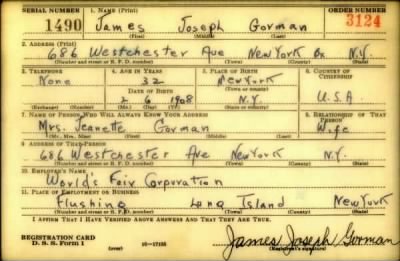 SERIAL NUMBER 1. NAME (Print) ORDER NUMBER
1490 James Joseph Gorman 3124
(First) (Middle) (Last)
2. ADDRESS (Print)
686 Westchester Ave New York Bx N.Y.
(Number and street or R. F. D. number) (Town) (County) (State)
3. TELEPHONE 4. AGE IN YEARS 5. PLACE OF BIRTH 6. COUNTRY OF CITIZENSHIP
None 32 New York
DATE OF BIRTH (Town or county)
2 6 1908 N.Y. U.S.A
(Exchange) (Number) (Mo.) (Day) (Yr.) (State or country)
7. NAME OF PERSON WHO WILL ALWAYS KNOW YOUR ADDRESS 8. RELATIONSHIP OF THAT PERSON
Mrs. Jeanette Gorman Wife
(Mr., Mrs., Miss) (First) (Middle) (Last)
9. ADDRESS OF THAT PERSON
686 Westchester Ave New York N.Y.
(Number and street or R. F. D. number) (Town) (County) (State)
10. EMPLOYER'S NAME
World's Fair Corporation
11. PLACE OF EMPLOYMENT OR BUSINESS
Flushing Long Island New York
(Number and street or R. F. D. number) (Town) (County) (State)
I AFFIRM THAT I HAVE VERIFIED ABOVE ANSWERS AND THAT THEY ARE TRUE.
REGISTRATION CARD
D. S. S. Form 1 (over) 16—17105 James Joseph Gorman
(Registrant's signature)